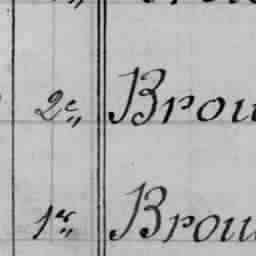 2e,, Brou
1er,, Brou